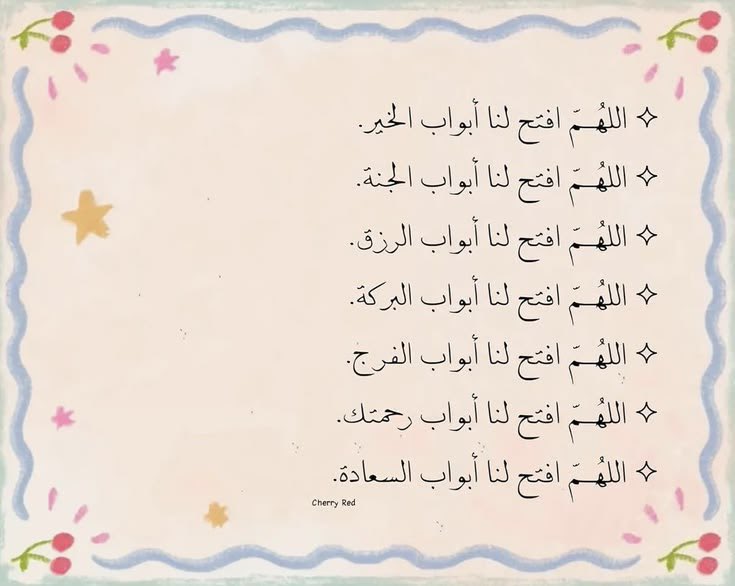 ✧ اللهُمّ افتح لنا أبواب الخير.
✧ اللهُمّ افتح لنا أبواب الجنة.
✧ اللهُمّ افتح لنا أبواب الرزق.
✧ اللهُمّ افتح لنا أبواب البركة.
✧ اللهُمّ افتح لنا أبواب الفرج.
✧ اللهُمّ افتح لنا أبواب رحمتك.
✧ اللهُمّ افتح لنا أبواب السعادة.
Cherry Red